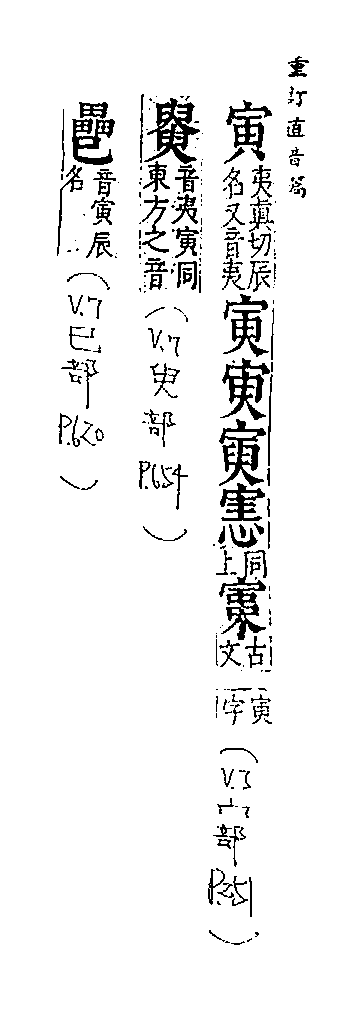 重訂直音篇
寅 夷真切辰名又音夷 寅 寅 上同 古文 寅字 (V.3 宀部 P.251)
音夷寅同東方之音 (V.7 臾部 P.654)
音寅辰名 (V.7 巳部 P.620)